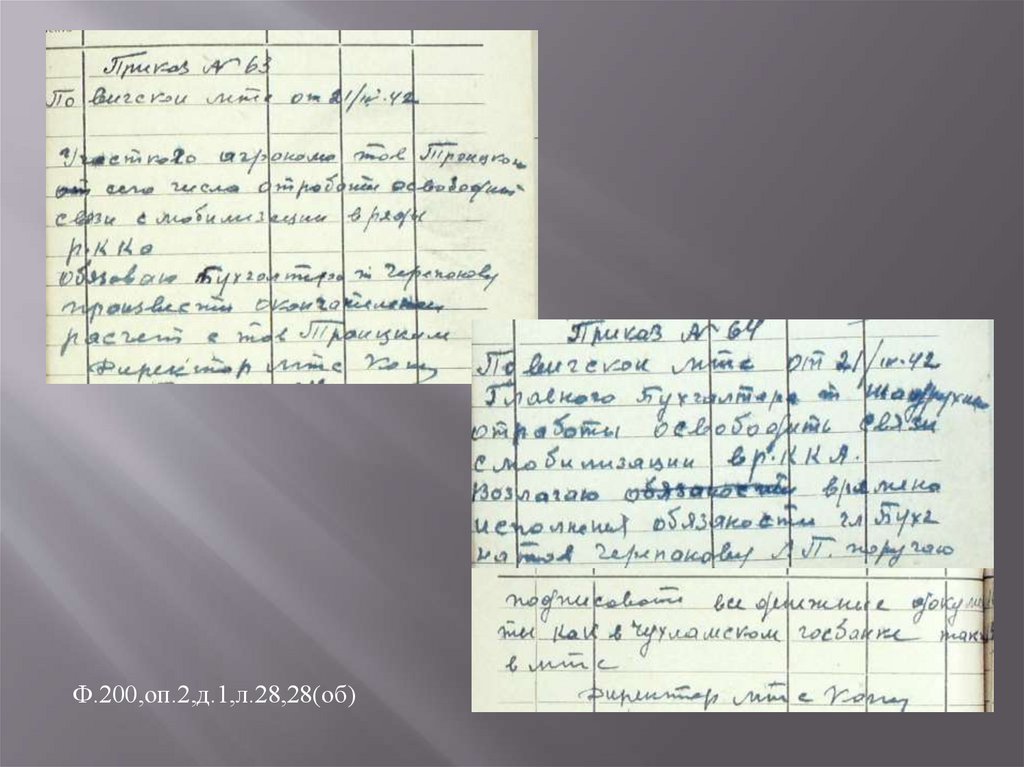 Приказ № 63
По вигской мтс от 21/IV-42
Участково агронома тов Троицкого
от сего числа отработы освободит
связи с мобилизации в ряды
р.ККа
обязоваю Бухгалтера т Черепокову
произвести окончателнои
расчет с тов Троицким
Директор мтс
Приказ № 64
По вигской мтс от 21/IV-42
Главного Бухгалтера т
отработы освободить связи
с мобилизации в р.ККА.
Возлагаю обязаности времена
исполнения обязаности гл Бухг
на тов Черепокову Л П. поручаю
подписовать все денежние докумен
ты как в Чухламском госбанке так
в мтс
Директор мтс
Ф.200,оп.2,д.1,л.28,28(об)